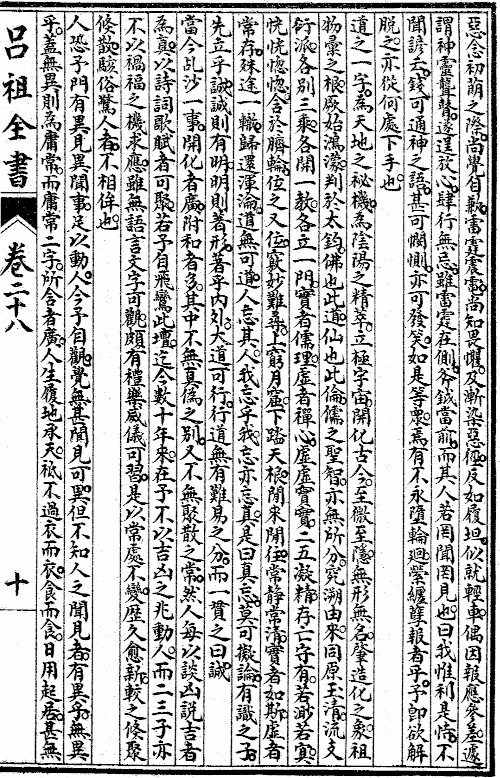 惡念初萌之際尚覺自歉雷霆震電尚知畏懼及漸染惡徑反如履坦似就輕車偶因報應參差遽
謂神靈聾瞽遂逞放心肆行無忌雖雷霆在側斧鉞當前而其人若罔聞罔見也曰我惟利是恃不
聞諺云錢可通神之語甚可憫惻亦可發笑如是等衆焉有不永墮輪迴縈纏孽報者乎予卽欲解
脫之亦從何處下手也
道之一字為天地之秘機為陰陽之精萃立極宇宙開化古今至微至隱無形無名肇造化之象祖
物彙之根厥始鴻濛判於太鈞佛也此道仙也此倫儒之聖智亦無所分究溯由來同原玉清流支
衍派各別三乘各開一教各立一門實者儒理虛者禪心虛虛實實二五凝精存亡守有若渺若冥
恍恍惚惚含於臍輪位之又位竅妙難尋上窮月窟下踏天根閒來閒往常靜常清實者如斯虛者
常存殊途一轍歸還渾淪道無可道人忘其人我忘乎我忘亦忘真是曰真忘莫可擬論有識之子
先立乎誠誠則有明明則著形著乎內外大道可行行道無有難易之分而一貫之曰誠
當今乩沙一事開化者廣附和者多其中不無真偽之別又不無聚散之常然人每以談凶說吉者
為真以詩詞歌賦者可聚若予自飛鸞此壇迄今數十年來在予不以吉凶之兆動人而二三子亦
不以禍福之機求應雖無語言文字可觀頗有禮樂威儀可習是以常處不變歷久愈新較之倏聚
倏散駭俗驚人者不相侔也
人恐予門有異見異聞事足以動人今予自觀覺無甚聞見可異但不知人之聞見者有異乎無異
乎蓋無異則為庸常而庸常二字所含者廣人生履地承天祗不過衣而衣食而食日用起居甚無
呂祖全書 卷二十八 十